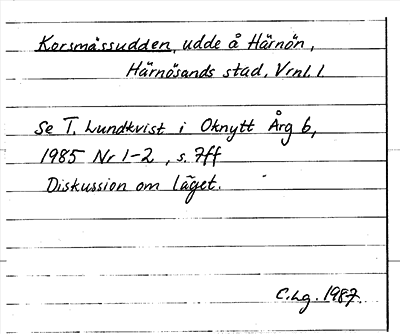 Korsmässudden, udde å Härnön,
Härnösands stad, Vrnl. l.
Se T. Lundkvist i Oknytt Årg 6,
1985 Nr 1-2, s. 7ff
Diskussion om läget.
C. Lg. 1987.